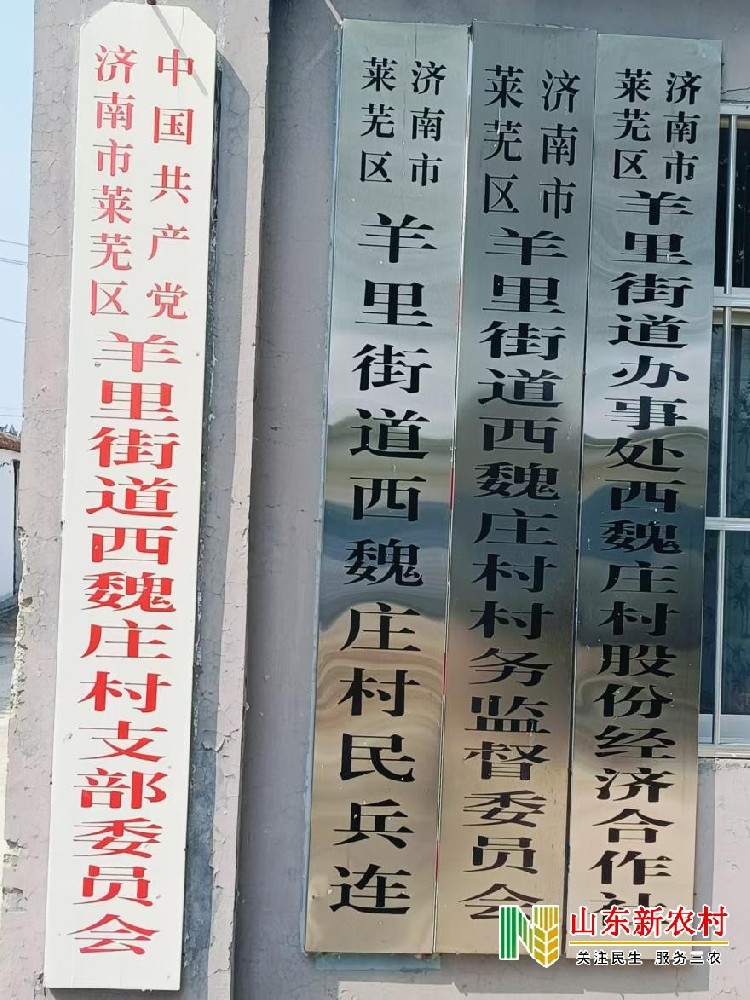 中国共产党
济南市莱芜区
羊里街道西魏庄村支部委员会
济南市
莱芜区
羊里街道西魏庄村民兵连
济南市
莱芜区
羊里街道西魏庄村村务监督委员会
济南市
莱芜区
羊里街道办事处西魏庄村股份经济合作社
山东新农村
关注民生 服务三农